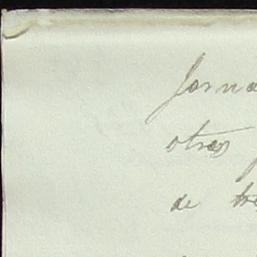 Jorna
otros
de tr